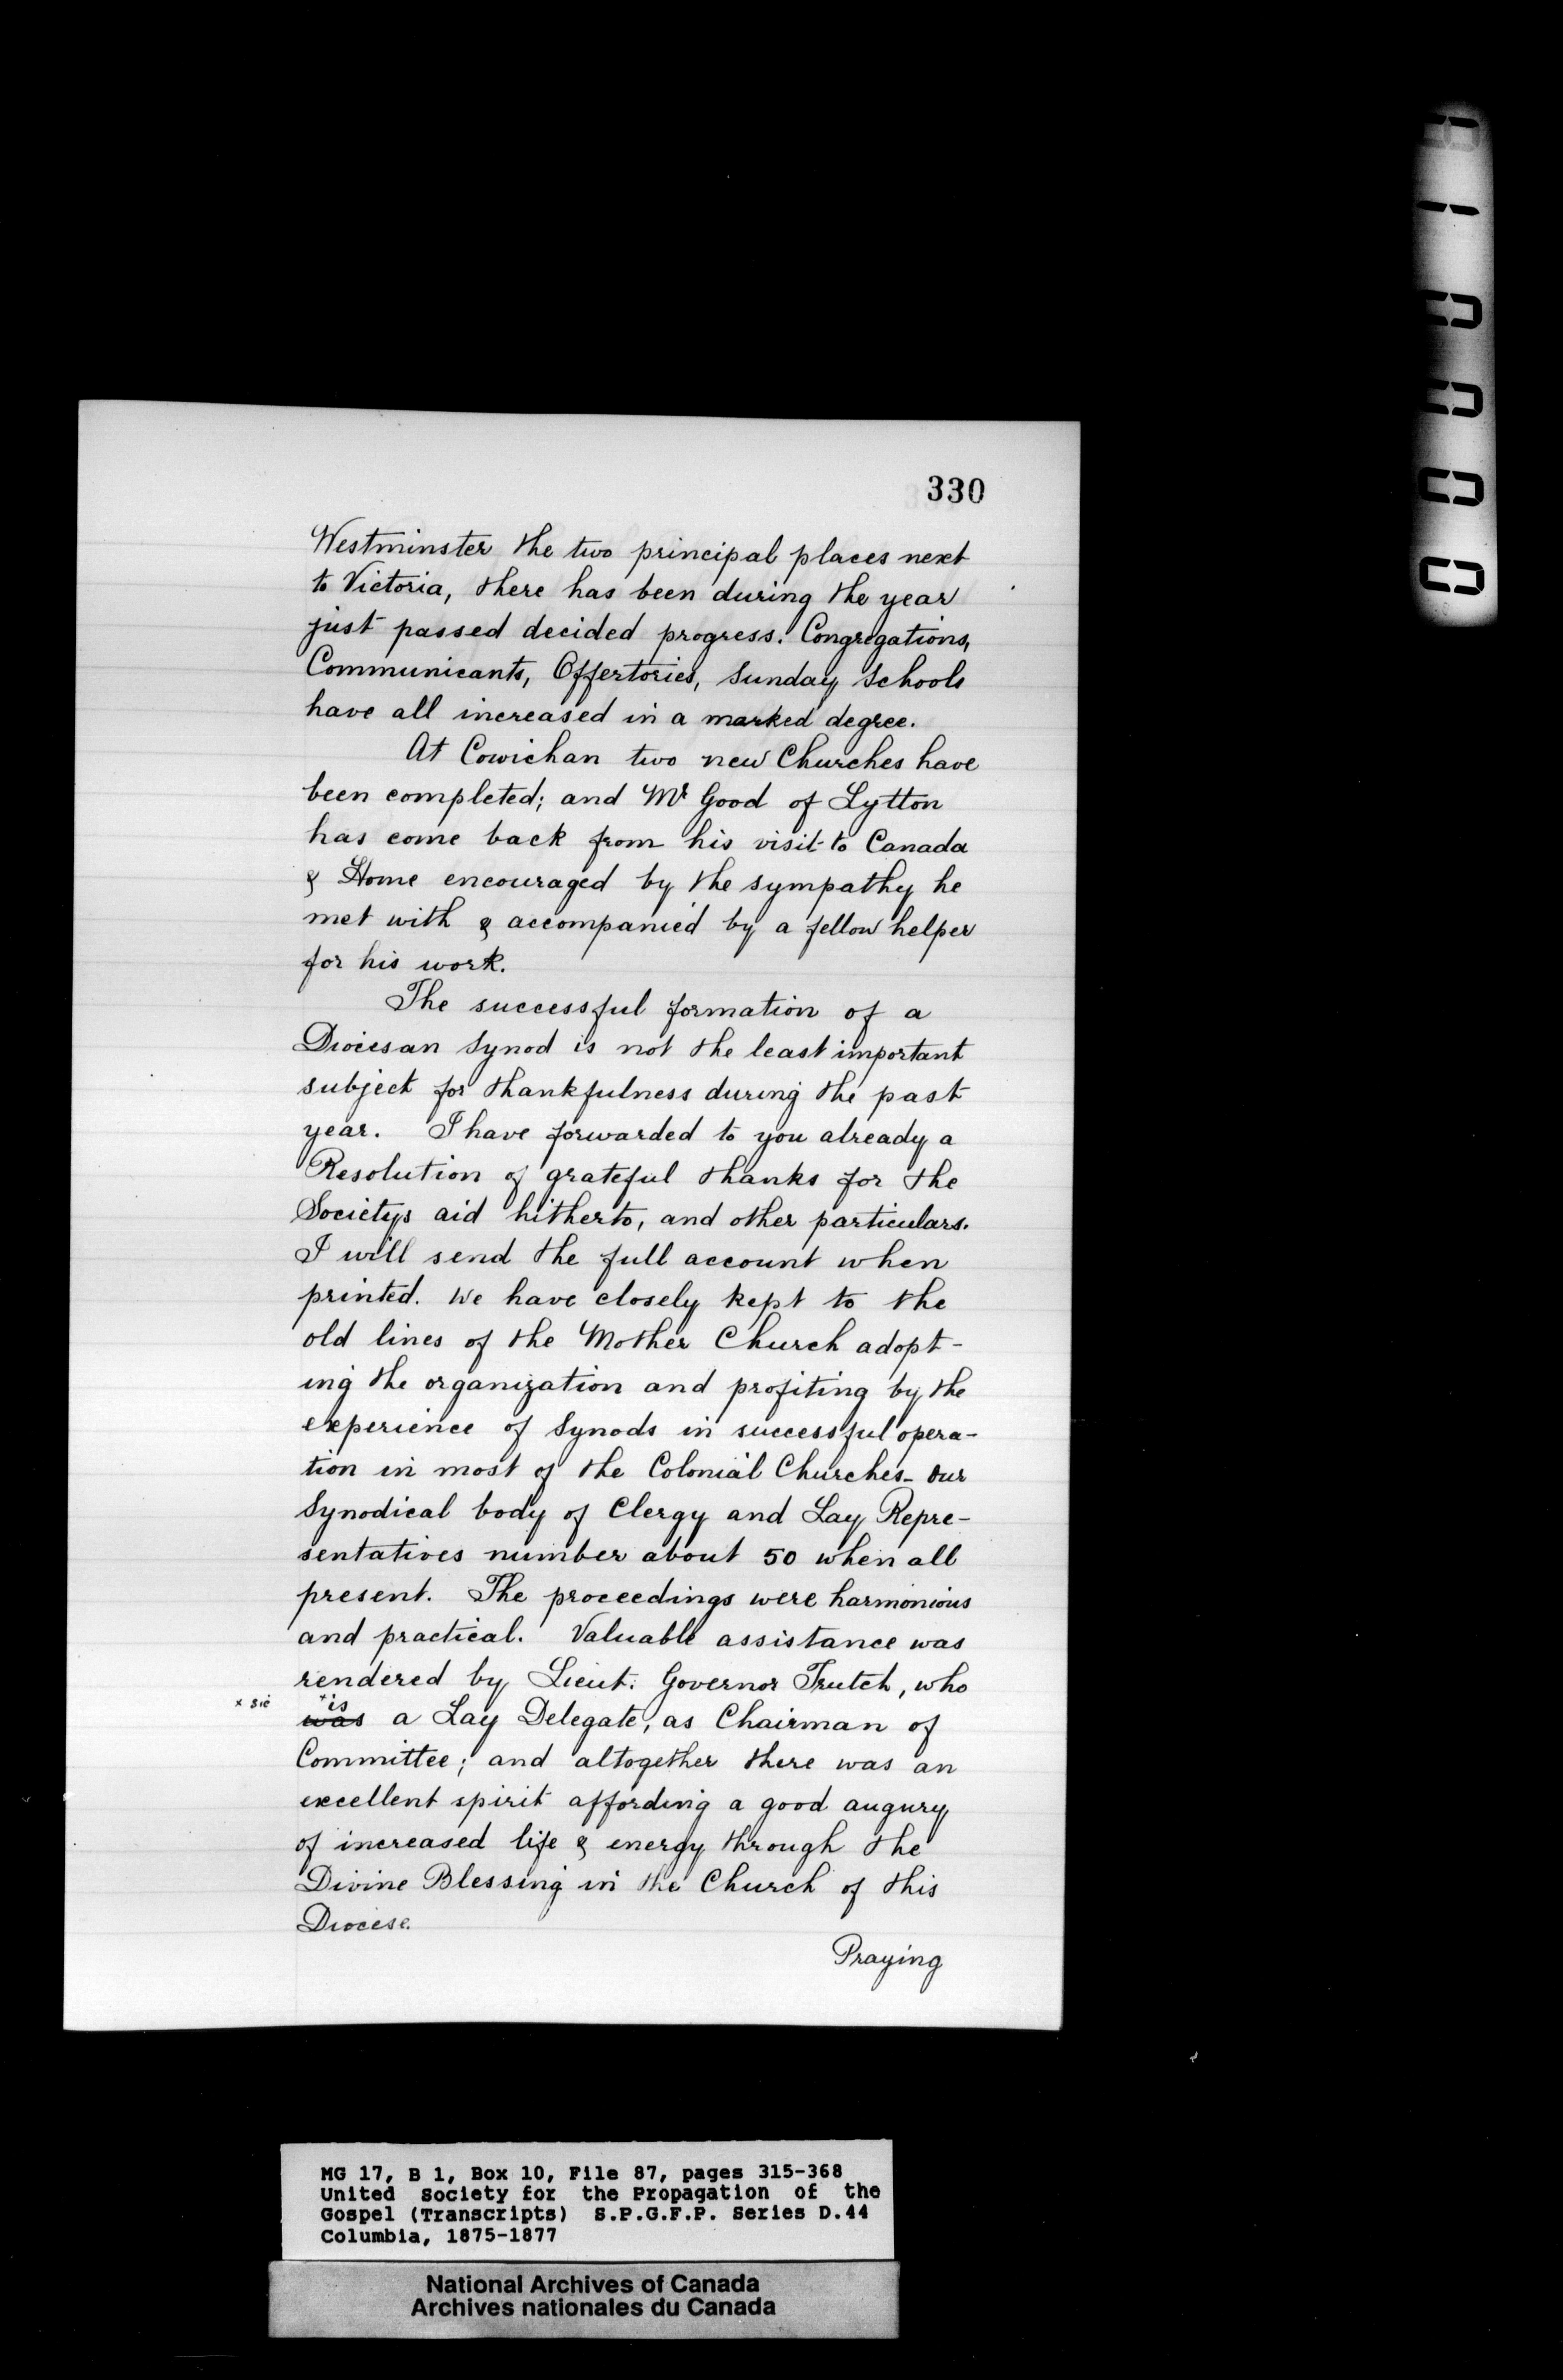 330
Westminster the two principal places next
to Victoria, there has been during the year
just passed decided progress. Congregations,
Communicants, Offertories, Sunday Schools
have all increased in a marked degree.
At Cowichan two new Churches have
been completed; and Mr Good of Lytton
has come back from his visit to Canada
& Home encouraged by the sympathy he
met with & accompanied by a fellow helper
for his work.
The successful formation of a
Diocesan Synod is not the least important
subject for thankfulness during the past
year. I have forwarded to you already a
Resolution of grateful thanks for the
Societys aid hitherto, and other particulars.
I will send the full account when
printed. We have closely kept to the
old lines of the Mother Church adopt-
ing the organization and profiting by the
experience of Synods in successful opera-
tion in most of the Colonial Churches- Our
Synodical body of Clergy and Lay Repre-
sentatives number about 50 when all
present. The proceedings were harmonious
and practical. Valuable assistance was
rendered by Lieut. Governor Trutch, who
x sic
x is
was a Lay Delegate, as Chairman of
Committee; and altogether there was an
excellent spirit affording a good augury
of increased life & energy through the
Divine Blessing in the Church of this
Diocese.
Praying
MG 17, B 1, Box 10, File 87, pages 315-368
United Society for the Propagation of the
Gospel (Transcripts) S.P.G.F.P. Series D.44
Columbia, 1875-1877
National Archives of Canada
Archives nationales du Canada